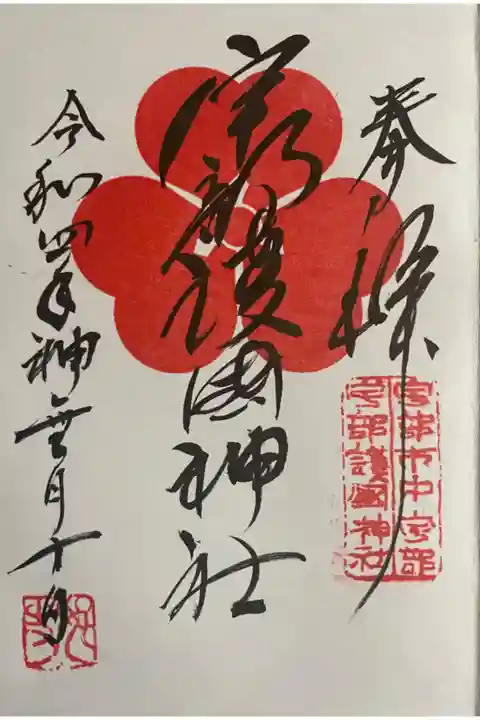 奉拝
宇部市中宇部
宇部護國神社
宇部護國神社
令和四年神無月十日